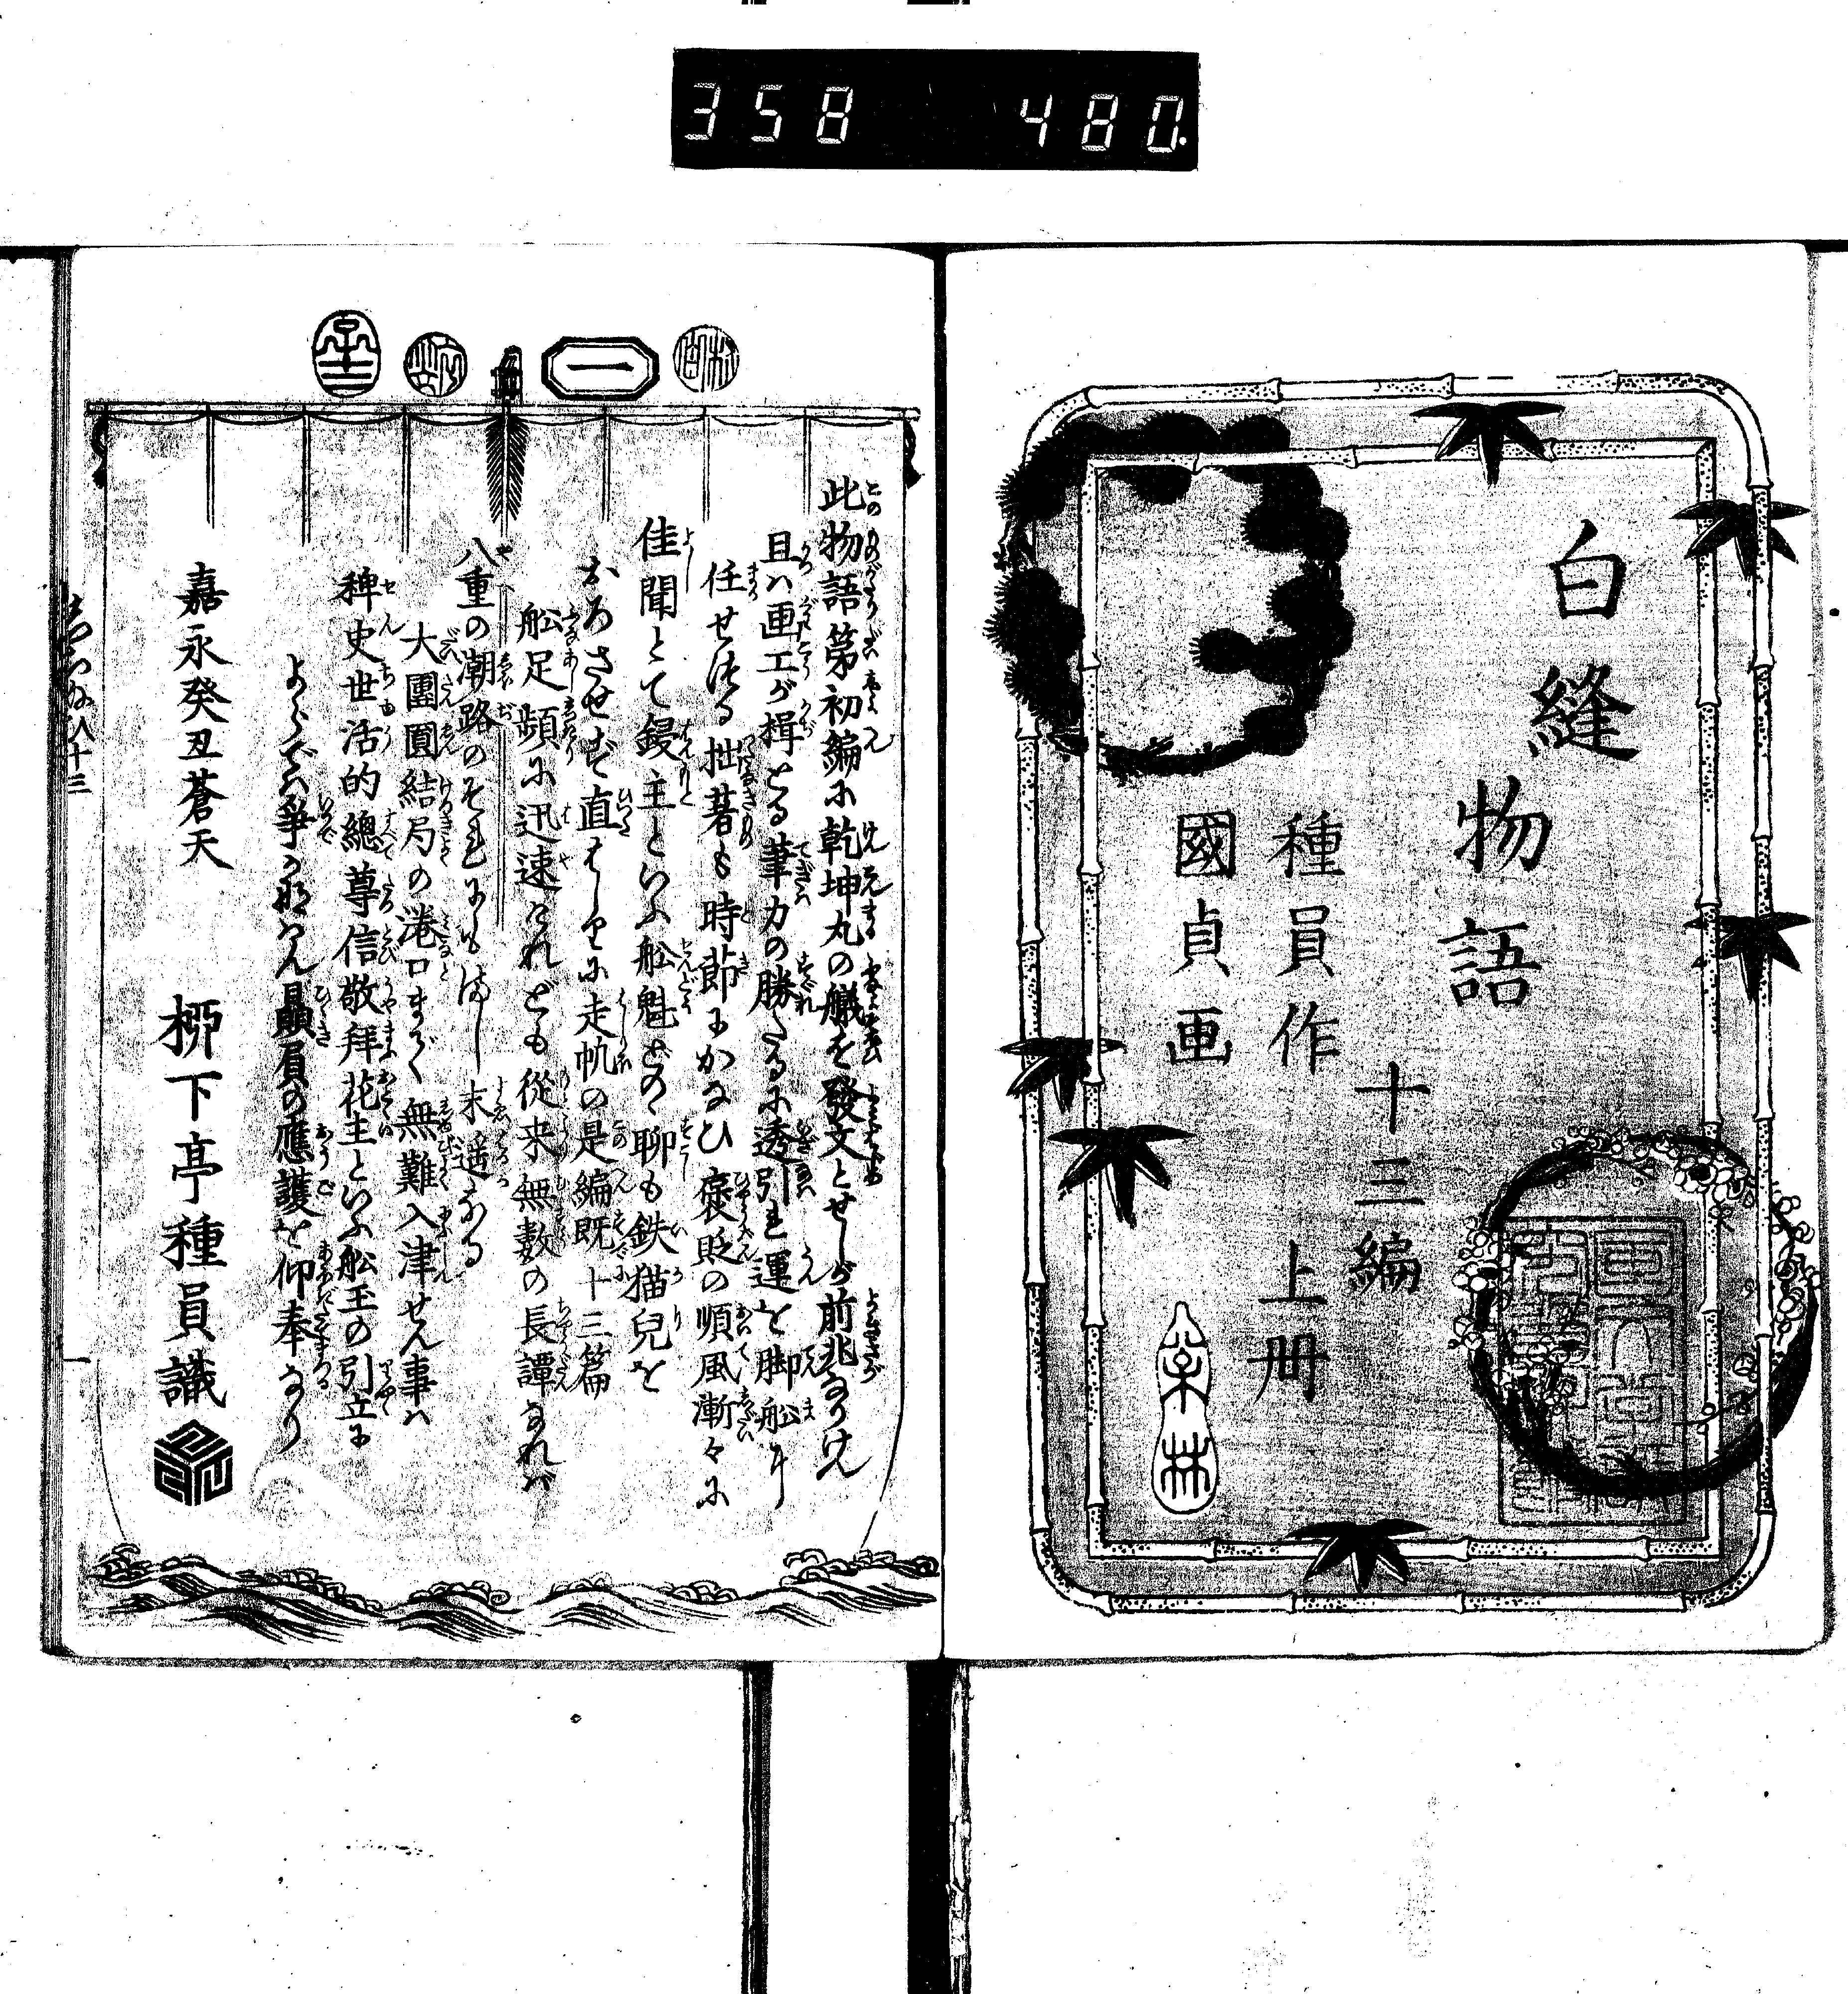 358 480.
白縫
物語
十三編
上冊
種員作
國貞画
京林
一
此物語第初編ふ乾坤丸の艤を發文とせしが前兆なりけん
且ハ画工が揖とる筆力の勝たるふ透引も運を脚船り
任せぬる拙著も時節にかなひ褒貶の順風漸々ふ
佳聞とて鍐主といふ舩魁どの聊も鉄猫兒を
おろさせず直ばしりに走帆の是編既十三篇
舩足頻ふ迅速けれども從来無数の長譚なれバ
八重の潮路のそれにもまし末遥なる
大團圓結局の港口まで無難入津せん事ハ
稗史世活的總尊信敬拜花主といふ舩玉の引立に
よらでハ争か叶はん贔屓の應護を仰奉なり
嘉永癸丑蒼天
柳下亭種員識
しらぬひ十三
一